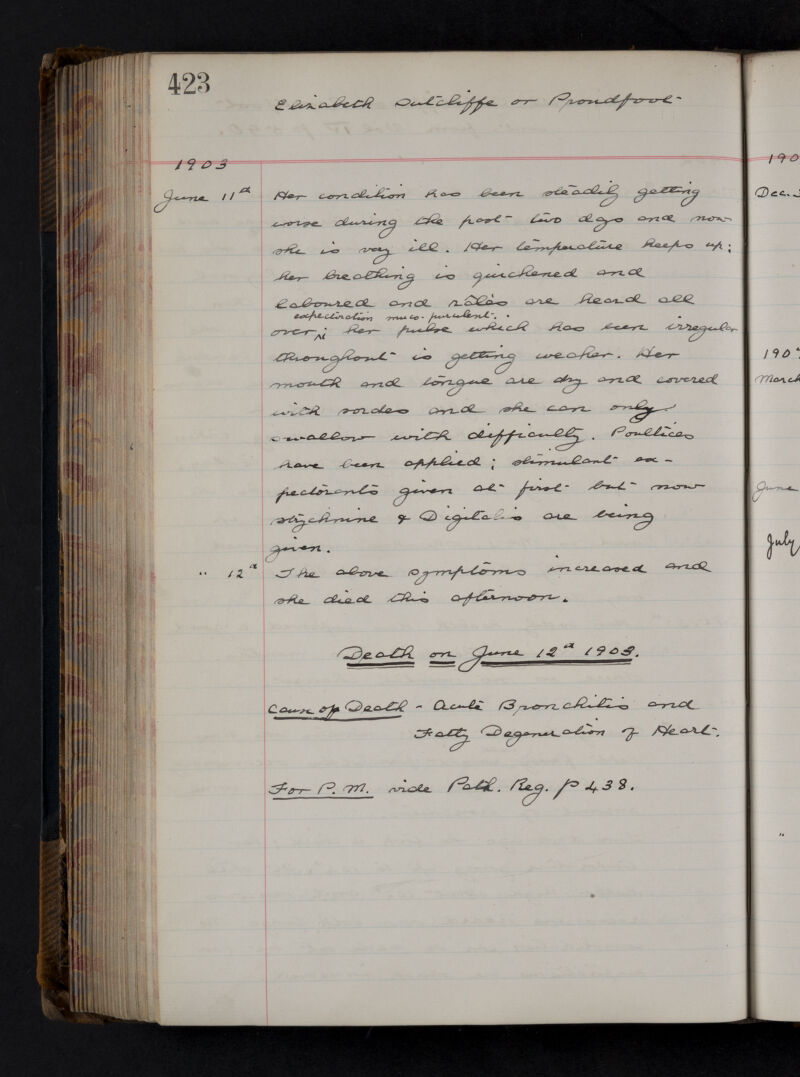 423
Elizabeth Sutcliffe or Proudfoot
1903
June 11th Her condition has been steadily getting
worse during the past two days and now
she is very ill. Her temperature keeps up;
her breathing is quickened and
laboured and râles are heard all
expectoration muco-purulent.
over; her pulse which has been irregular
throughout is getting weaker. Her
mouth and tongue are dry and covered
with sordes and she can only
swallow with difficulty. Poultices
have been applied; stimulant ex-
pectorants given at first but now
strychnine & Digitalis are being
given.
" 12th The above symptoms increased and
she died this afternoon.
Death on June 12th 1903.
Cause of Death - Acute Bronchitis and
Fatty Degeneration of Heart.
For P.M. vide Path. Reg. p 438.
190
Dec.
190
March
June
July
"